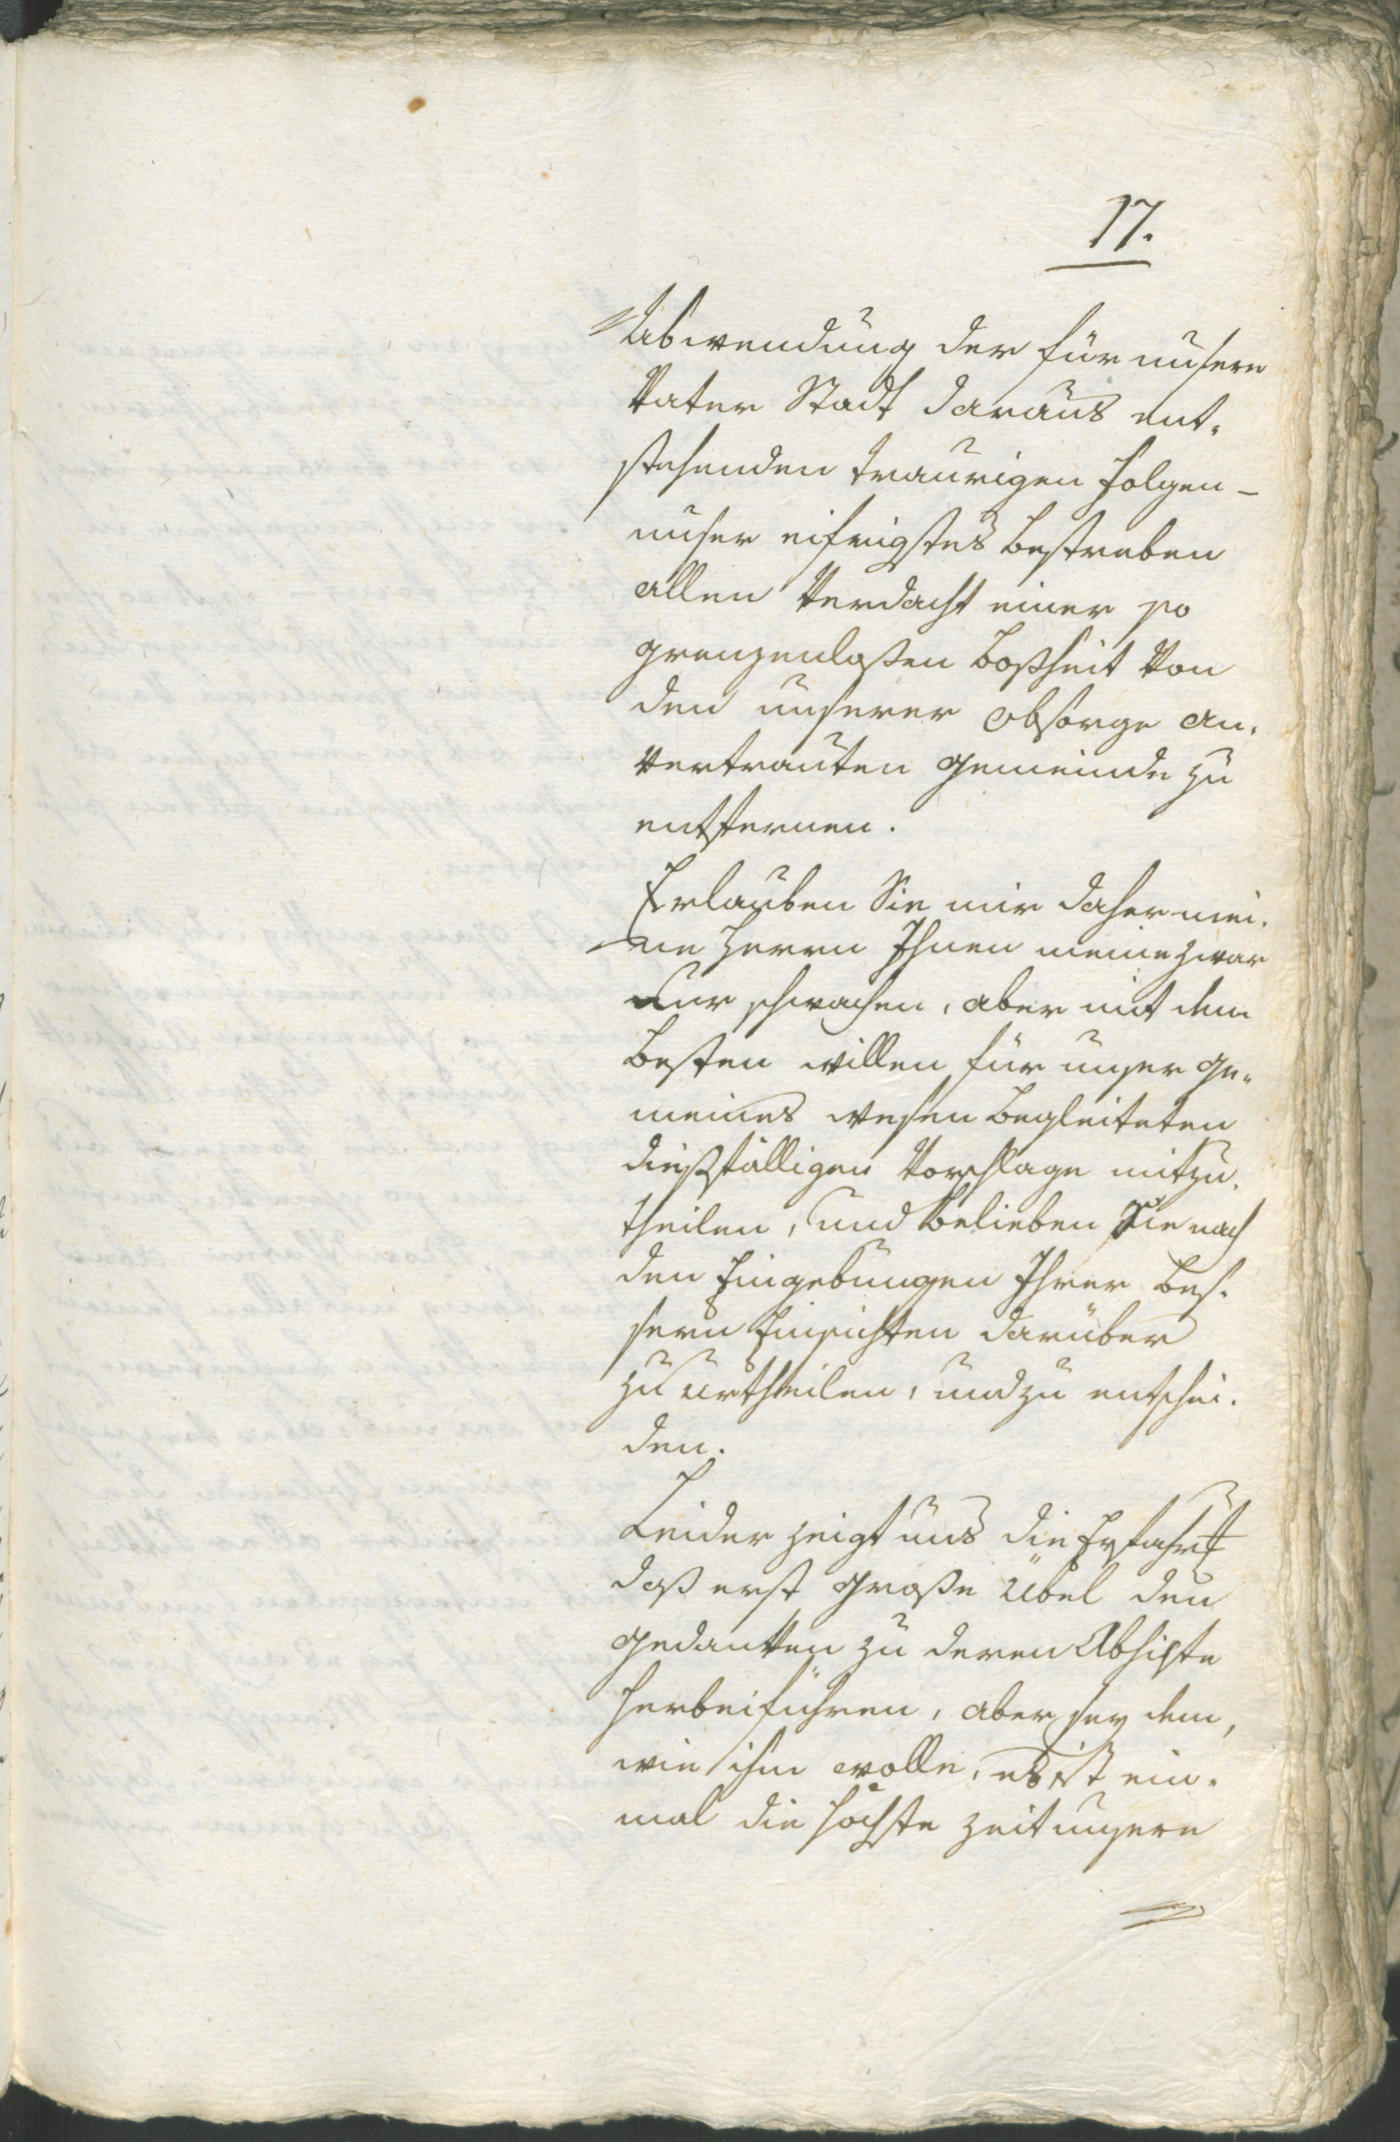 17.
Abwendung der für unsere
Vater Stadt daraus ent-
stehenden traurigen Folgen –
unser eifrigstes Bestreben
allen Verdacht einer so
grenzenloßen Boßheit von
den unserer Obsorge an-
vertrauten Gemeinde zu
entfernen.
Erlauben Sie mir daher mei-
ne Herrn Ihnen meine zwar
nur schwachen, aber mit dem
besten Willen für unser ge-
meines Wesen begleiteten
dießfälligen Vorschläge mitzu-
theilen, und belieben Sie nach
den Eingebungen Ihrer bes-
sern Einsichten darüber
zu urtheilen, und zu entschei-
den.
Leider zeigt uns die
daß erst große Übel den
Gedanken zu deren Abhilfe
herbeiführen, aber sey dem,
wie ihm wolle, es ist ein-
mal die höchste Zeit unsere